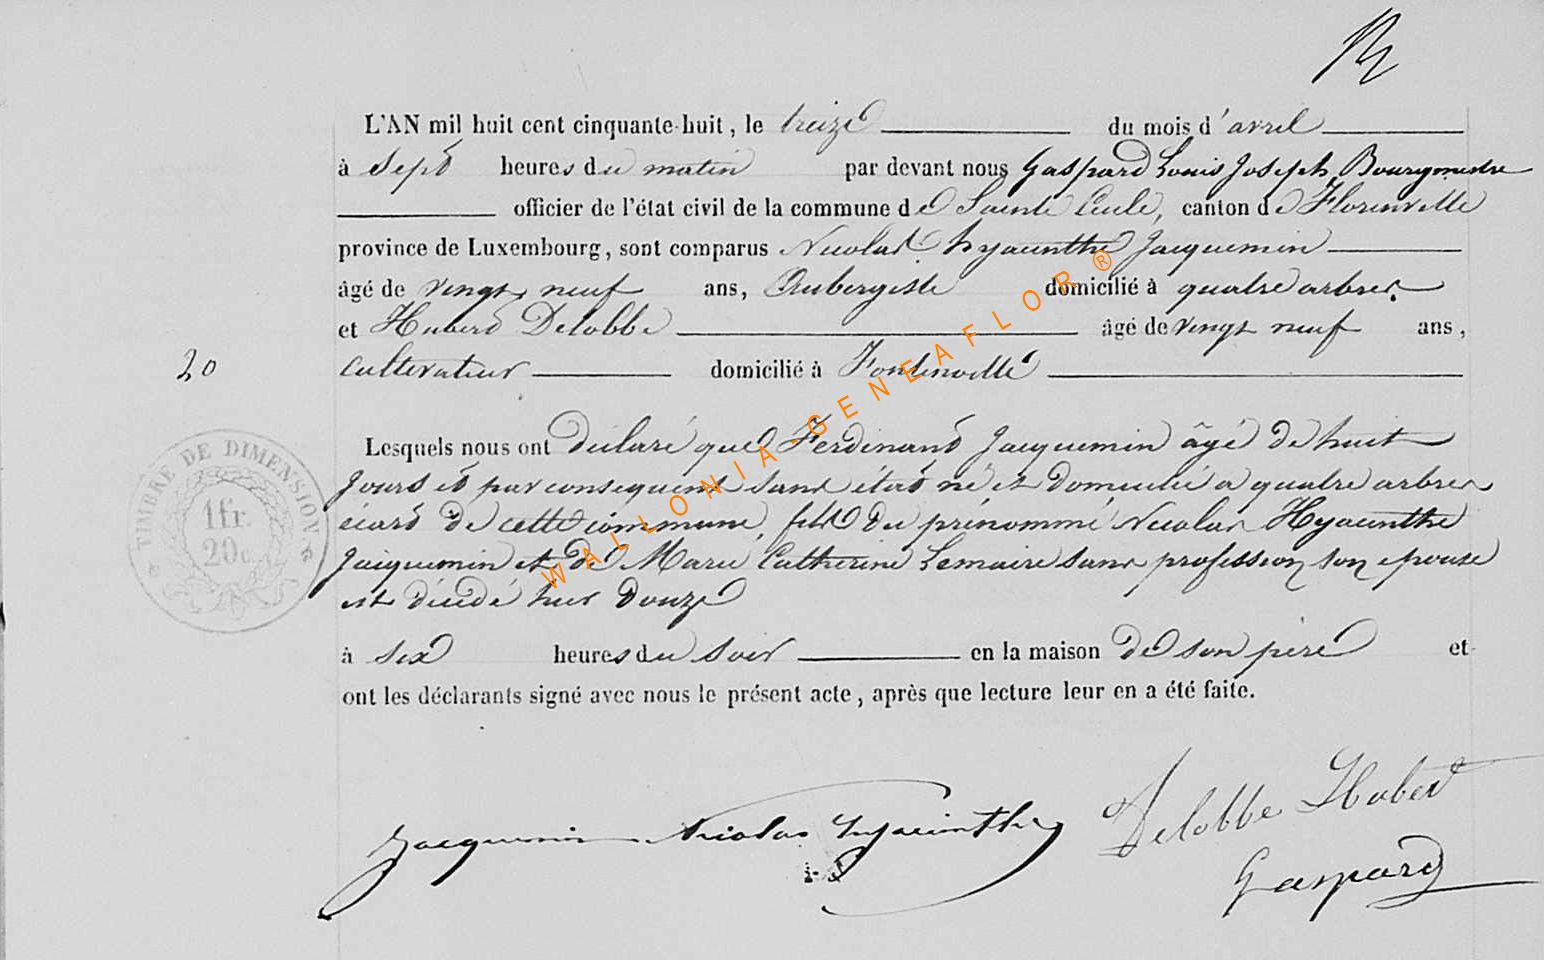 L'AN mil huit cent cinquante-huit, le treize du mois d'avril
à sept heures du matin par devant nous Gaspard Louis Joseph, Bourgmestre
officier de l'état civil de la commune de Sainte Cécile, canton de Florenville
province de Luxembourg, sont comparus Nicolas hyacinthe Jacquemin
âgé de vingt neuf ans, Aubergiste domicilié à quatre arbres
et Hubert Delobbe âgé de vingt neuf ans,
20
cultivateur domicilié à Fontenoille
Lesquels nous ont déclaré que Ferdinand Jacquemin âgé de huit
jours et par consequent sans état né et domicilié à quatre arbres
écart de cette commune, fils du prénommé Nicolas Hyacinthe
Jacquemin et de Marie Catherine Lemaire sans profession son epouse
est décédé hier douze
à six heures du soir en la maison de son père et
ont les déclarants signé avec nous le présent acte, après que lecture leur en a été faite.
TIMBRE DE DIMENSION.
1 fr.
20c
WALLONIA-GENEAFLOR ®
Jacquemin Nicolas hyacinthe
Delobbe Hubert
Gaspard